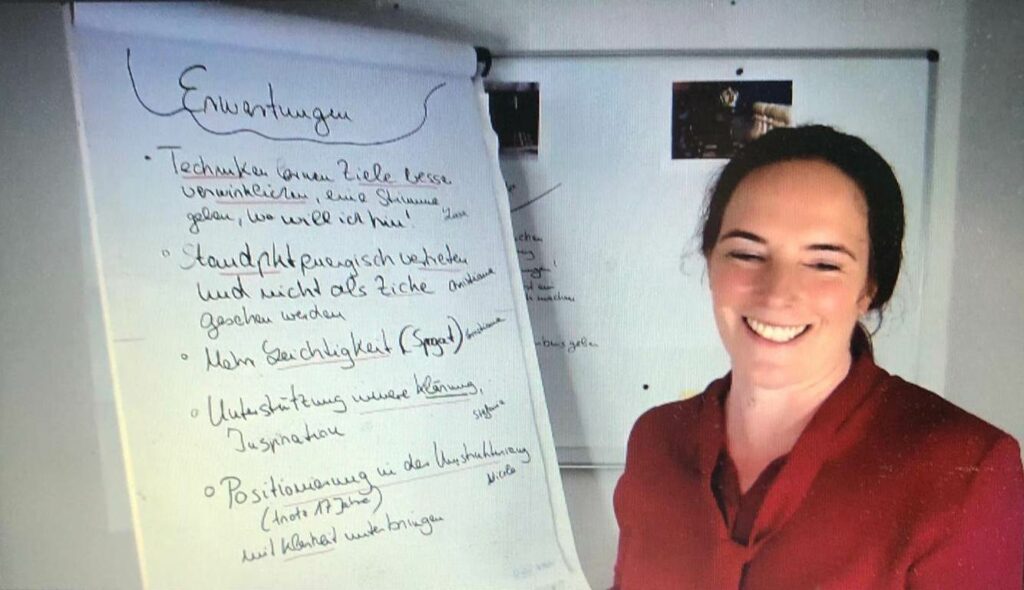 Erwartungen
• Techniken lernen Ziele besse
verwirklichen, eine Stimme
geben, wo will ich hin!
◦ Standpkt energisch vertreten
und nicht als Zicke
gesehen werden
◦ Mehr Leichtigkeit (Spagat)
◦ Unterstützung innere Klärung,
Inspiration
Stefanie
◦ Positionierung in der Umstrukturierung
Nicole
(trotz 17 Jahre)
mit Klarheit unterbringen